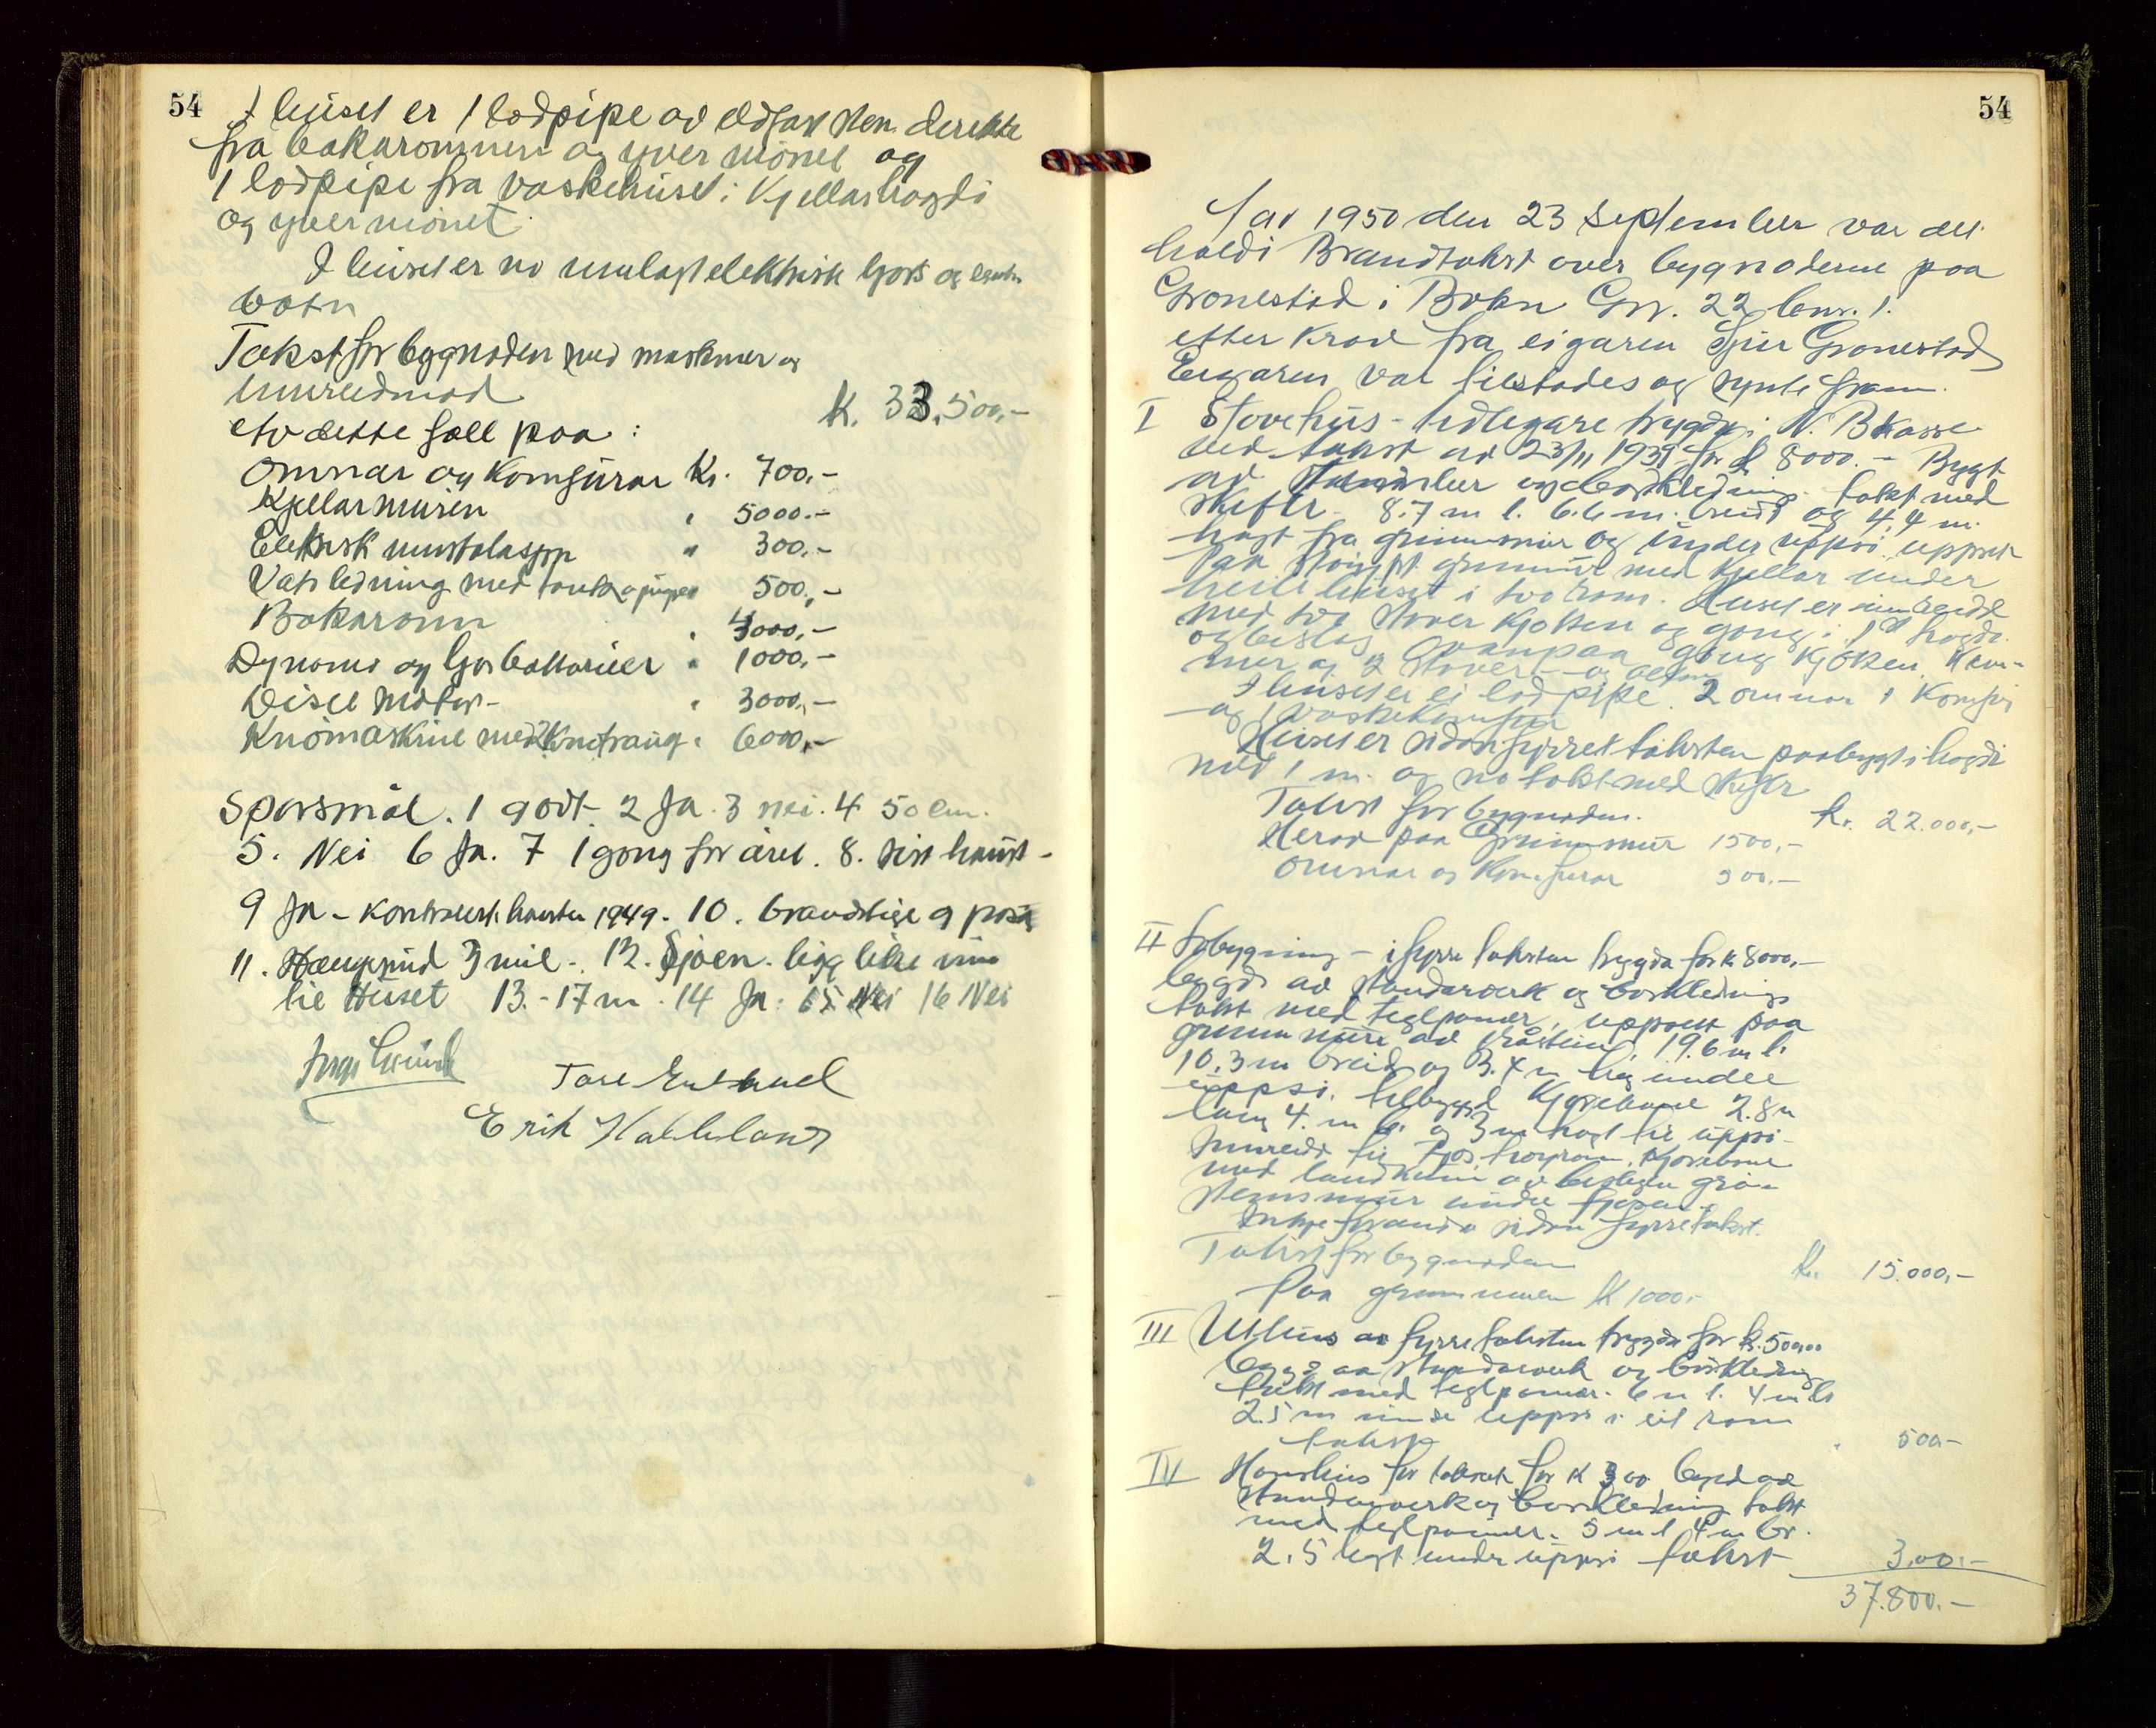 54
I huset er 1 lodpipe av eldfast sten derekte
fra bakaromnen og yver mönet og
1 lodpipe fra vaskehuset i Kjellarhogdi
og yver mönet
I huset er no innlagt elektrisk ljos og
vatn
Takst for bygnaden med maskiner og
innreidnad
K. 33.500,-
etv dette fell paa :
Omnar og Komfürar Kr. 700,-
Kjellarmüren " 5000.-
Elektrisk instalasjon " 300,-
Vats ledning med tank og 500,-
Bakaromn " 4000,-
Dynomo og ljosbattarier " 1000,-
Disel motor - " 3000,-
Knömaskine med Knetraug " 6000,-
Sporsmål. 1 godt. 2 Ja. 3 nei. 4 50 cm.
5. Nei 6 Ja. 7 1 gong for året. 8. sist haust -
9 Ja - Kontraiert hausten 1949. 10. brandstige og
11. Haugesund 3 mil -. 12. Sjöen. ligg like inn
til Hüset 13. - 17 m. 14 Ja. 15 Nei 16 Nei
Erik Habbeland
54
Aar 1950 den 23 september var det
haldi Brandtakst over bygnaderne paa
Gronestad i Bokn Gnr. 22 bnr. 1.
etter Krav fra eigaren Sjur Gronestad
Eigaren var tilstades og synte fram.
I Stovehus - tidlegare trygda i N. B Kasse
ved takst av 23/11 1939 for K 8000. - Bygt
av og bordkledning. takt med
skifer. 8.7 m l. 6.6 m. breidt og 4.4 m.
högt fra grunnmur og under uppsi. uppsett
paa stöypt grunnmur med Kjellar under
heile huset i tvo rom. Huset er innreidd
med tvo stover Kjöken og gong i 1st högda.
og beslag. Ovanpaa gong Kjöken,
mer og 2 stover -
I huset er ei lodpipe. 2 omnar 1 Komfyr
og 1 vaskekomfyr
Huset er sidan fyrre taksten paabygt i högdi
med 1 m. og no takt med skifer
Takst for bygnaden. Kr. 22.000,-
Herav paa Grunnmur 1500,-
Omnar og Komfurar 900.-
II Lobygning - i fyrre taksten trygda for K 8000,-
bygd av standarverk og bordkledning
takt med teglpanner, uppsett paa
grunnmure av gråstein, 19.6 m l.
10.3 m breid og 3.4 m hög under
uppsi. tilbygd Kjörebane 2.8 m
lang 4. m b. og 3 m högt til uppsi -
Innreidt til Fjos, höyrom, Kjorebane
med landkum av
stensmur under fjosen.
Inkje forandra sidan fyrre takst.
Takst for bygnaden Kr. 15.000,-
Paa grunnmuren K 1000,-
III Uthus av fyrre taksten trygda for K. 500,00
bygd av standarverk og bordkledning
takt med teglpanner. 6 m l. 4 m br
2.5 m under uppsi i eit rom
takst " 500-
IV Hönshus for takst for K 300 bygd av
standarverk og bordkledning takt
med teglpanner. 5 m l 4 m br.
2.5 högt under uppsi takst 300,-
37.800.-